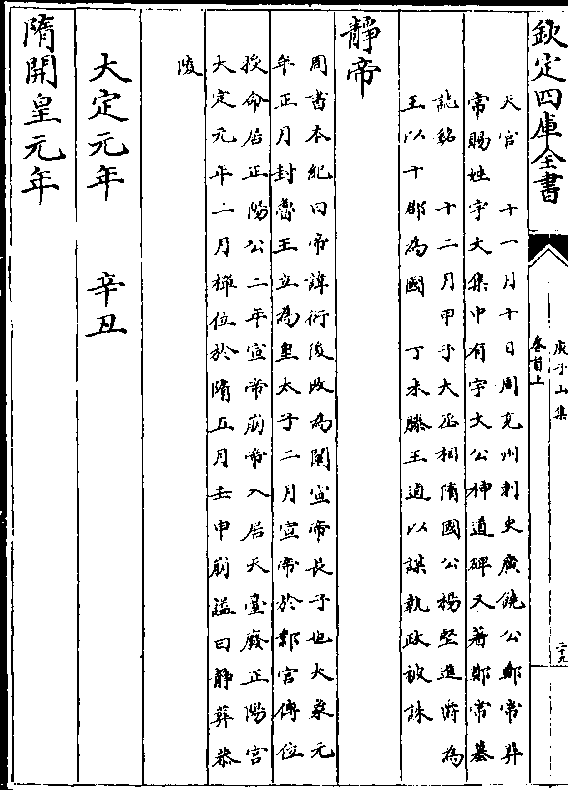 欽定四庫全書
庾子山集
卷首上
二十九
天官　十一月十日周兗州刺史廣饒公鄭常葬
常賜姓宇文集中有宇文公神道碑又著鄭常墓
誌銘　十二月甲子大丞相隋國公楊堅進爵為
王以十郡為國　丁未滕王逌以謀執政被誅
靜帝
周書本紀曰帝諱衍後改為闡宣帝長子也大象元
年正月封魯王立為皇太子二月宣帝於鄴宮傳位
授命居正陽公二年宣帝崩帝入居天臺廢正陽宮
大定元年二月禪位於隋五月壬申崩謚曰靜葬恭
陵
大定元年　辛丑
隋開皇元年